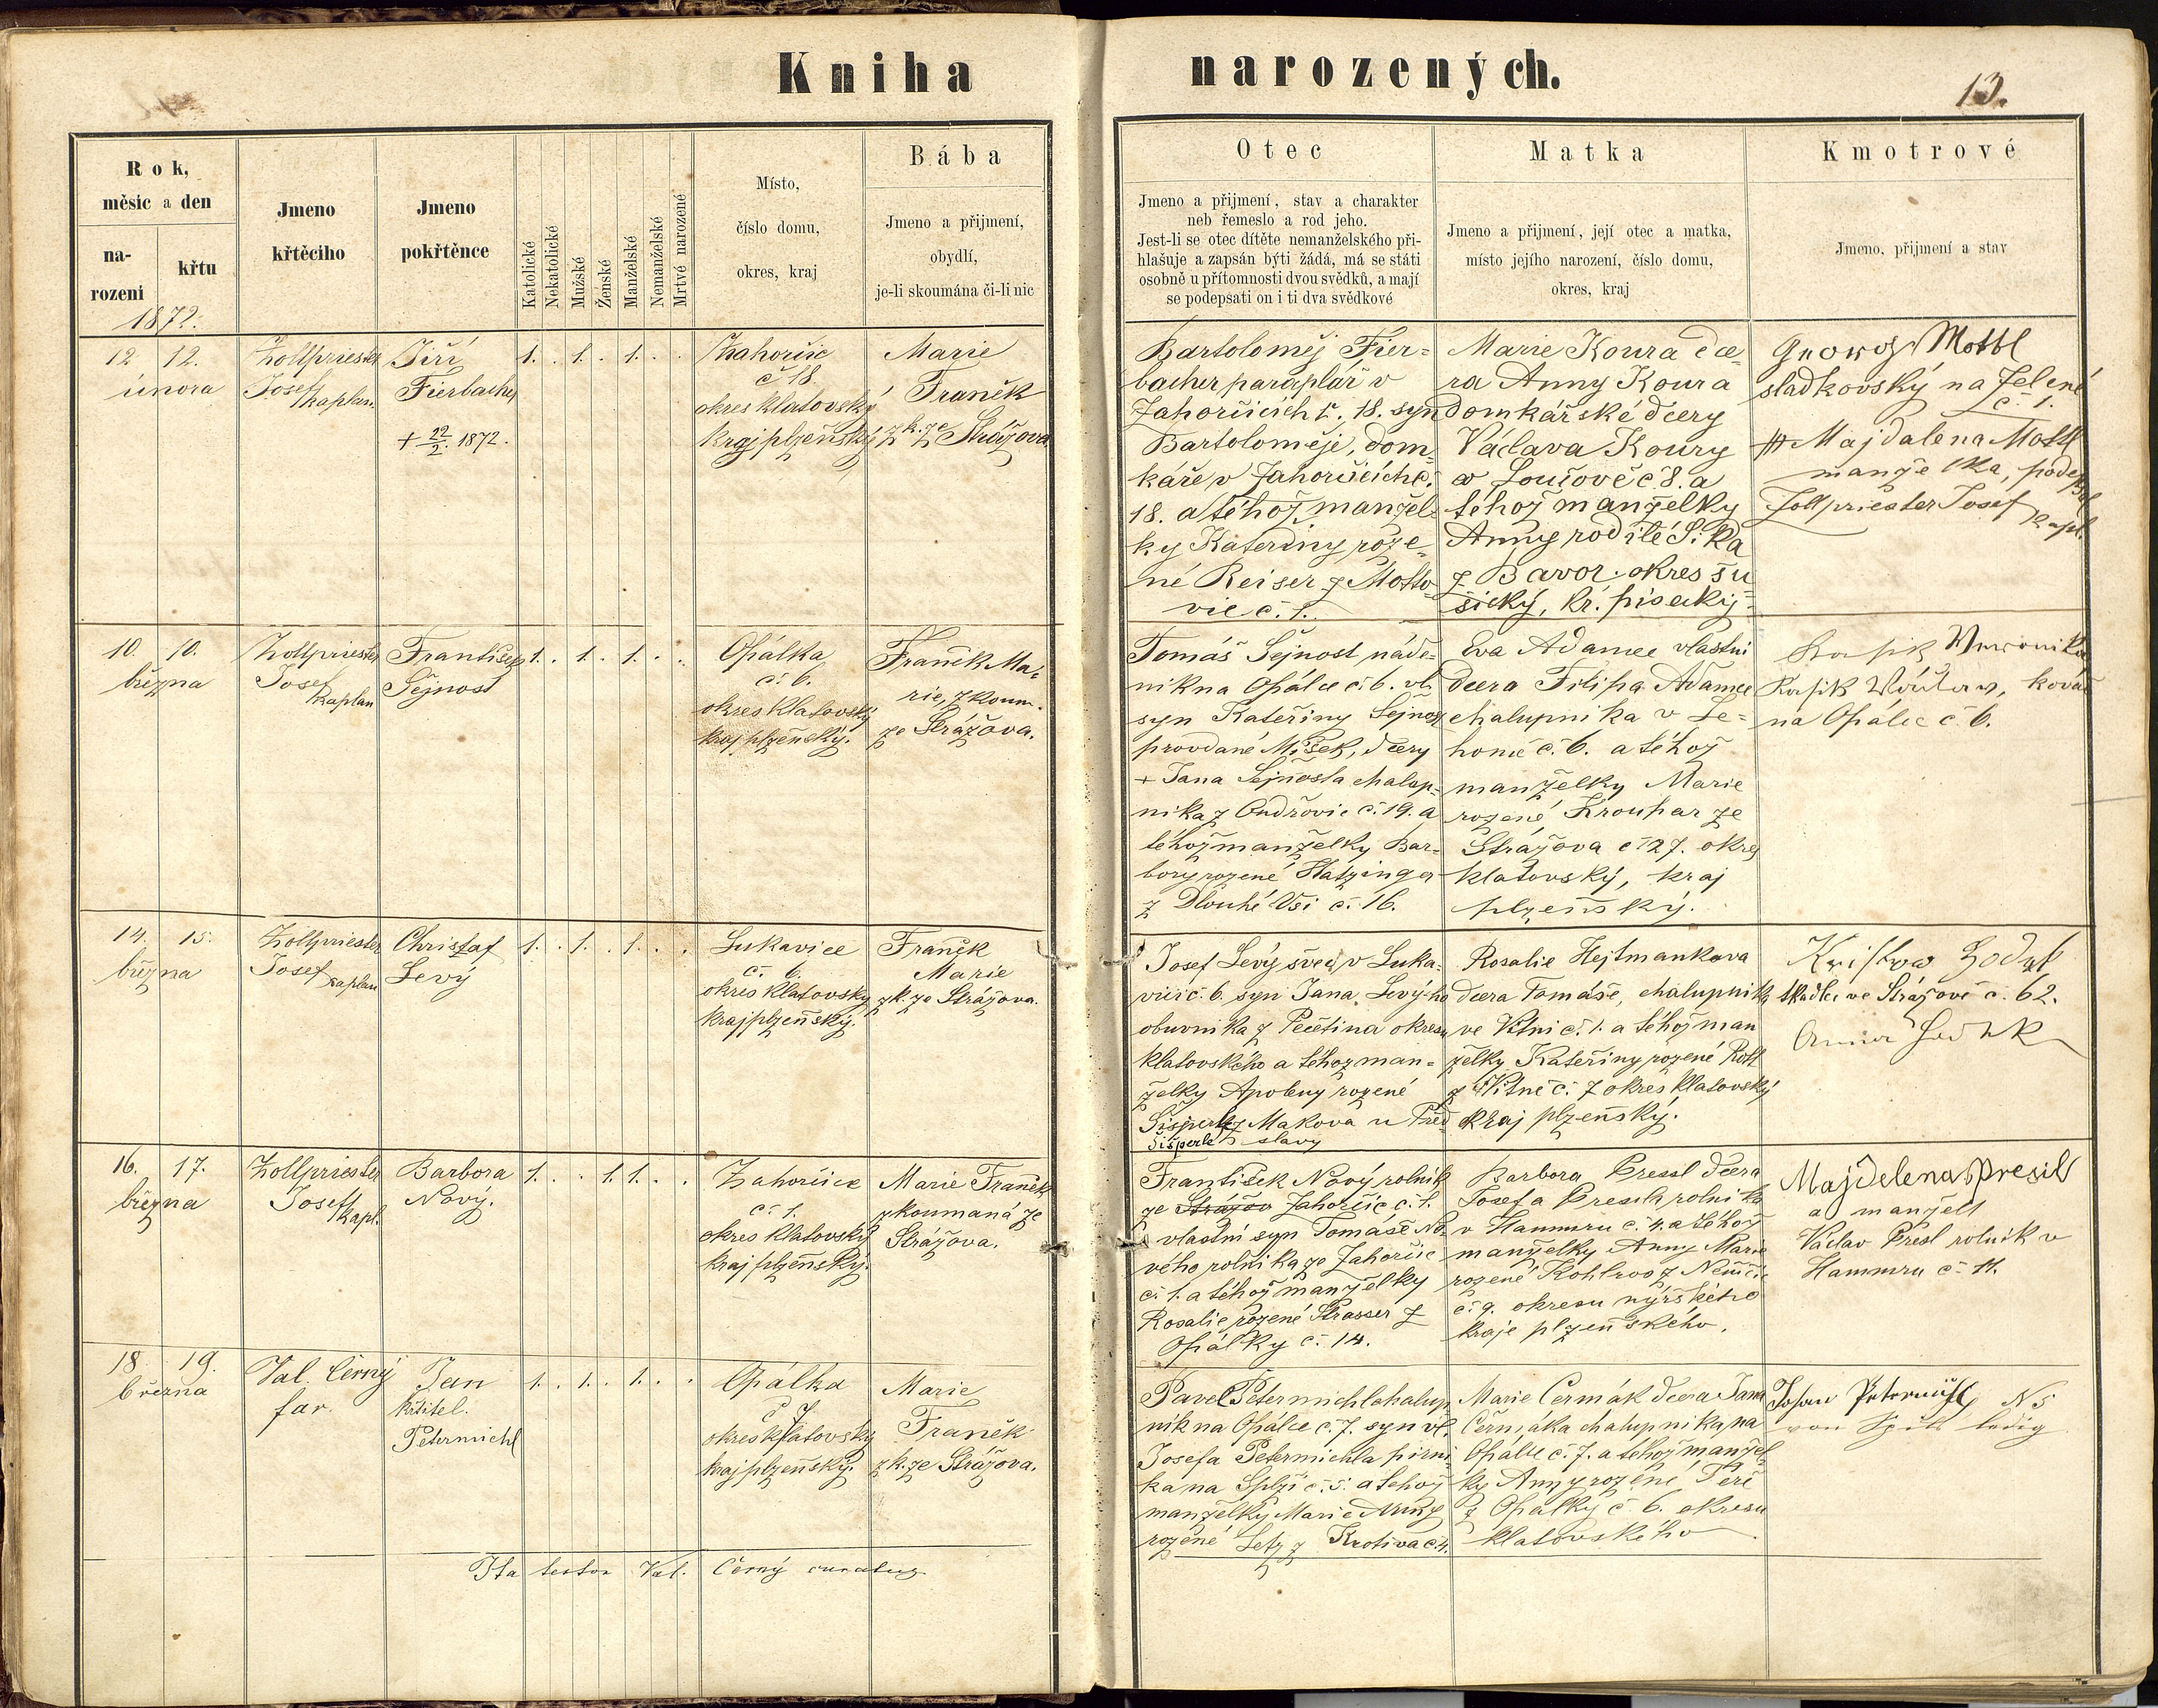 Kniha narozených.
13.
Rok,
měsíc a den
na-
rozeni
křtu
Jmeno
křtěcího
Jmeno
pokřtěnce
Katolické
Nekatolické
Mužské
Ženské
Manželské
Nemanželské
Mrtvé narozené
Místo,
číslo domu,
okres, kraj
Bába
Jmeno a přijmení,
obydlí,
je-li skoumána či-li nic
Otec
Jmeno a přijmení, stav a charakter
neb řemeslo a rod jeho.
Jest-li se otec dítěte nemanželského při-
hlašuje a zapsán býti žádá, má se státi
osobně u přítomnosti dvou svědků, a mají
se podepsati on i ti dva svědkové
Matka
Jmeno a přijmení, její otec a matka,
místo jejího narození, číslo domu,
okres, kraj
Kmotrové
Jmeno, přijmení a stav
1872.
12. 12.
února
Zollpriester
Josef
kaplan.
Jiří
Fierbacher
+ 22/2. 1872.
1. . 1. . 1. . .
Zahorčic
č 18.
okres klatovský
kraj plzeňský
Marie
Franěk
zk. ze Strážova
Bartoloměj Fier-
bacher paraplář v
Zahorčicích č. 18. syn
Bartoloměje, dom-
káře v Zahorčicích č.
18. a téhož manžel-
ky Kateřiny roze-
né Reiser z Motto-
vic č. 1.
Marie Koura dce-
ra Anny Koura
domkářské dcery
Václava Koury
v Loučově č 8. a
téhož manželky
Anny rodilé Sika
z Bavor okres su-
šický, kr. písecký.
Georg Mottl
sladkovský na Zelené
č 1.
Majdalena Mottl
manželka, podepsal
Zollpriester Josef
kapl.
10. 10.
března
Zollpriester
Josef
kaplan
František
Šejnost
1. . 1. . 1. . .
Opálka
č. 6.
okres klatovský
kraj plzeňský.
Franěk Ma-
rie, zkoum.
ze Strážova.
Tomáš Šejnost náde-
nik na Opálce č. 6. vl.
syn Kateřiny Šejnost
provdané Mišek, dcery
+ Jana Šejnosta chalup-
nika z Ondřovic č. 19. a
téhož manželky Bar-
bory rozené Hatzinger
z Dlouhé Vsi č. 16.
Eva Adamec vlastni
dcera Filipa Adamec
chalupnika v Že-
honic č. 6. a téhož
manželky Marie
rozené Kroupar ze
Strážova č 127. okres
klatovský, kraj
plzeňský.
kovář
na Opálce č. 6.
14. 15.
března
Zollpriester
Josef
kaplan
Christof
Levý
1. . 1. . 1. . .
Lukavice
č. 6.
okres klatovský
kraj plzeňský.
Franěk
Marie
zk. ze Strážova.
Josef Levý švec, v Luka-
vici č. 6. syn Jana Levý-ho
obuvnika z Pečetina okresu
klatovského a téhož man-
želky Apoleny rozené
Šišperle z Makova u Před-
Šišperle slavy
Rosalie Hejtmankova
dcera Tomáše, chalupnika
ve Vitni č. 1. a téhož man
želky Kateřiny rozené Roth
z Vitně č. 7 okres klatovský
kraj plzeňský.
tkadlec ve Strážově č. 62.
16. 17.
března
Zollpriester
Josef
kapl.
Barbora
Nový.
1. . . 1. 1. . .
Zahorčice
č. 1.
okres klatovský
kraj plzeňský.
Marie Franěk
zkoumaná ze
Strážova.
František Nový rolník
ze Strážov Zahorčic č. 1.
vlastní syn Tomáše No-
vého rolníka ze Zahorčic
č. 1. a téhož manželky
Rosalie rozené Strasser z
Opálky č. 14.
Barbora Pressl dcera
Josefa Pressla rolnika
v Hammru č. 4. a téhož
manželky Anny Marie
rozené Kohlroos z Němčic
č. 9. okresu nýrského
kraje plzeňského.
Majdelena Presil
a manžel
Václav Presl rolník v
Hammru č. 11.
18. 19.
března
Val. Černý
far.
Jan
křtitel.
Petermichl
1. . 1. . 1. . .
Opálka
č 7.
okres klatovský
kraj plzeňský.
Marie
Franěk
zk. ze Strážova.
Pavel Petermichl chalup-
nik na Opálce č. 7. syn vl.
Josefa Petermichla
ka na Splži č. 5. a téhož
manželky Marie Anny
rozené Letz z Krotiva č. 4.
Marie Čermák dcera Jana
Čermáka chalupnika na
Opálce č. 7. a téhož manžel-
ky Anny rozené
z Opálky č. 6. okresu
klatovského
Johan Petermichl N 5
ledig
Ita testor Val. Černý curatus